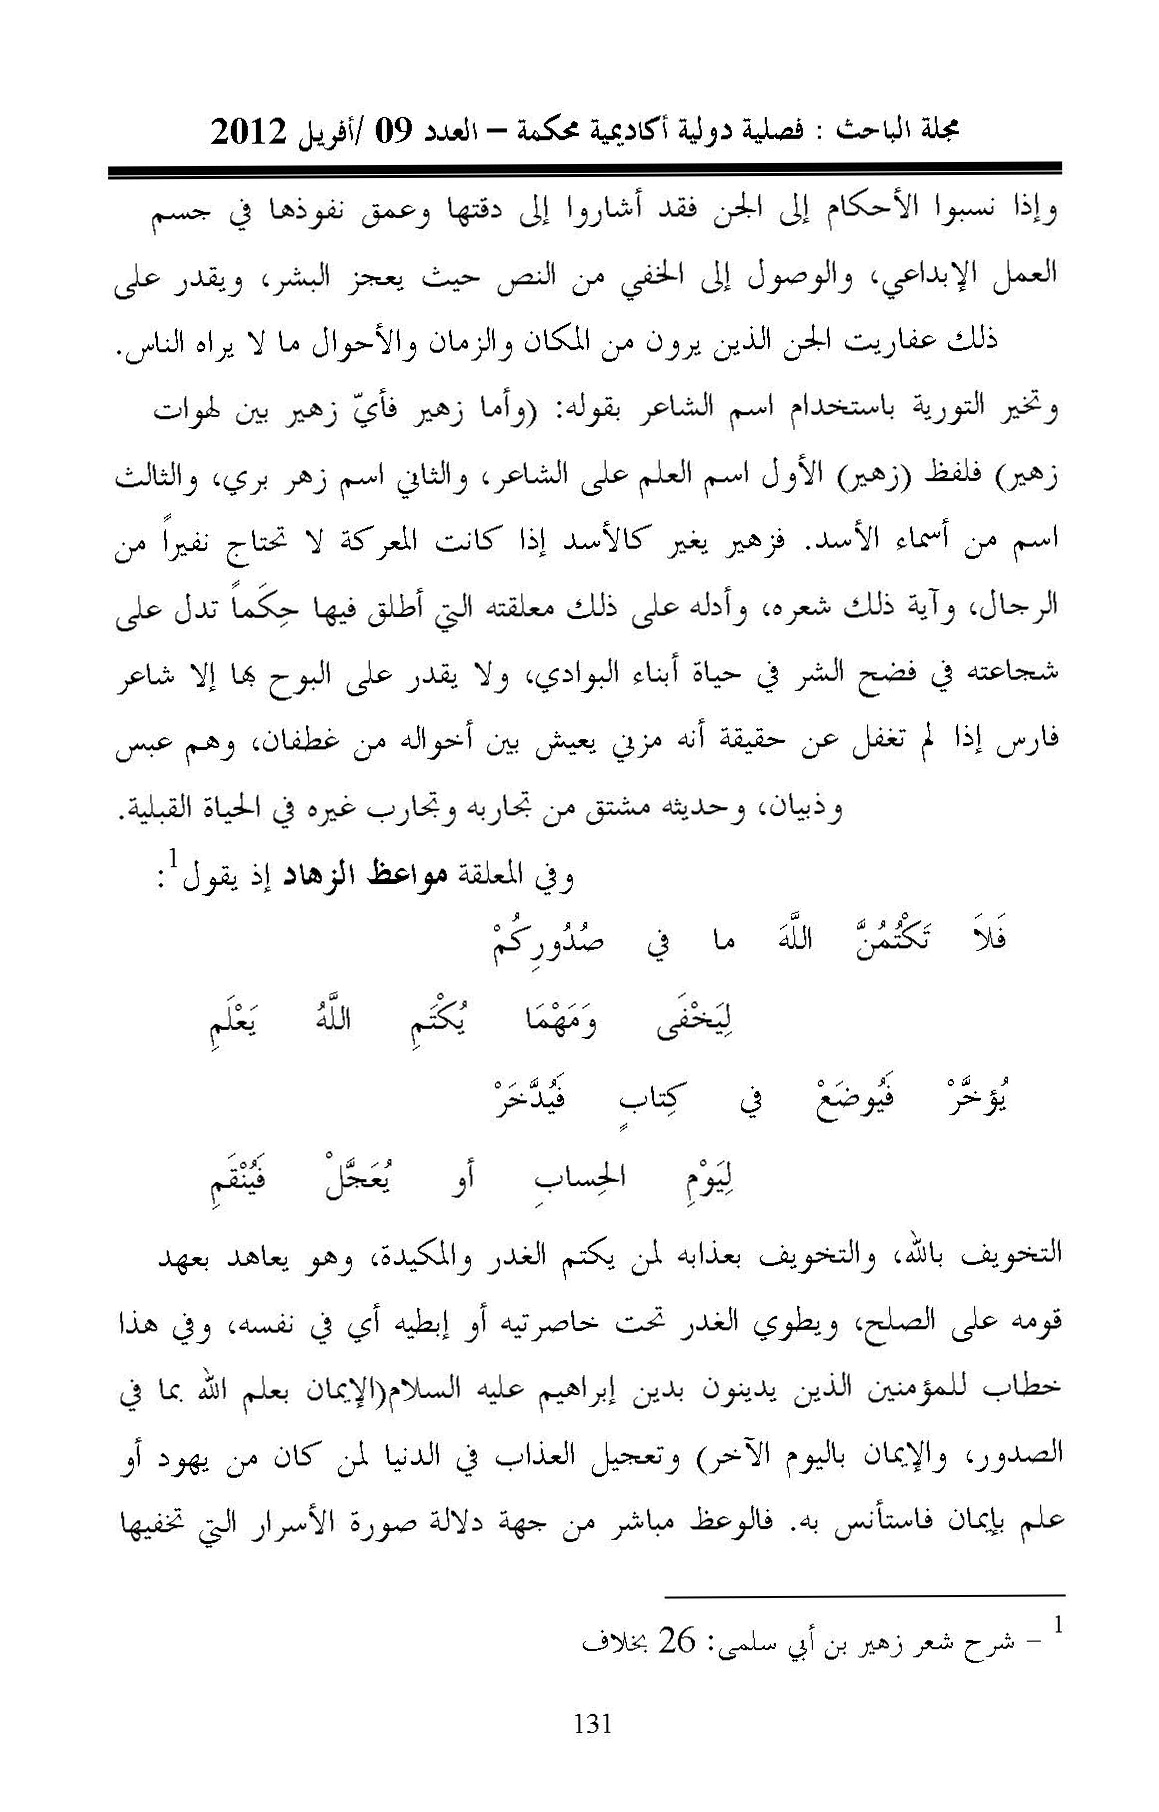 مجلة الباحث : فصلية دولية أكاديمية محكمة – العدد 09 /أفريل 2012
وإذا نسبوا الأحكام إلى الجن فقد أشاروا إلى دقتها وعمق نفوذها في جسم
العمل الإبداعي، والوصول إلى الخفي من النص حيث يعجز البشر، ويقدر على
ذلك عفاريت الجن الذين يرون من المكان والزمان والأحوال ما لا يراه الناس.
وتخير التورية باستخدام اسم الشاعر بقوله: (وأما زهير فأيّ زهير بين لهوات
زهير) فلفظ (زهير) الأول اسم العلم على الشاعر، والثاني اسم زهر بري، والثالث
اسم من أسماء الأسد. فزهير يغير كالأسد إذا كانت المعركة لا تحتاج نفيراً من
الرجال، وآية ذلك شعره، وأدله على ذلك معلقته التي أطلق فيها حِكَماً تدل على
شجاعته في فضح الشر في حياة أبناء البوادي، ولا يقدر على البوح بها إلا شاعر
فارس إذا لم تغفل عن حقيقة أنه مزني يعيش بين أخواله من غطفان، وهم عبس
وذبيان، وحديثه مشتق من تجاربه وتجارب غيره في الحياة القبلية.
وفي المعلقة مواعظ الزهاد إذ يقول1:
فَلاَ تَكْتُمُنَّ اللَّهَ ما في صُدُورِكُمْ
لِيَخْفَى وَمَهْمَا يُكْتَمِ اللَّهُ يَعْلَمِ
يُؤخَّرْ فَيُوضَعْ في كِتابٍ فَيُدَّخَرْ
لِيَوْمِ الحِسابِ أو يُعَجَّلْ فَيُنْقَمِ
التخويف بالله، والتخويف بعذابه لمن يكتم الغدر والمكيدة، وهو يعاهد بعهد
قومه على الصلح، ويطوي الغدر تحت خاصرتيه أو إبطيه أي في نفسه، وفي هذا
خطاب للمؤمنين الذين يدينون بدين إبراهيم عليه السلام(الإيمان بعلم الله بما في
الصدور، والإيمان باليوم الآخر) وتعجيل العذاب في الدنيا لمن كان من يهود أو
علم بإيمان فاستأنس به. فالوعظ مباشر من جهة دلالة صورة الأسرار التي تخفيها
1 – شرح شعر زهير بن أبي سلمى: 26 بخلاف
131